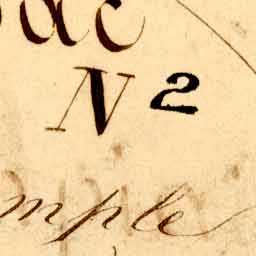 N 2
mple